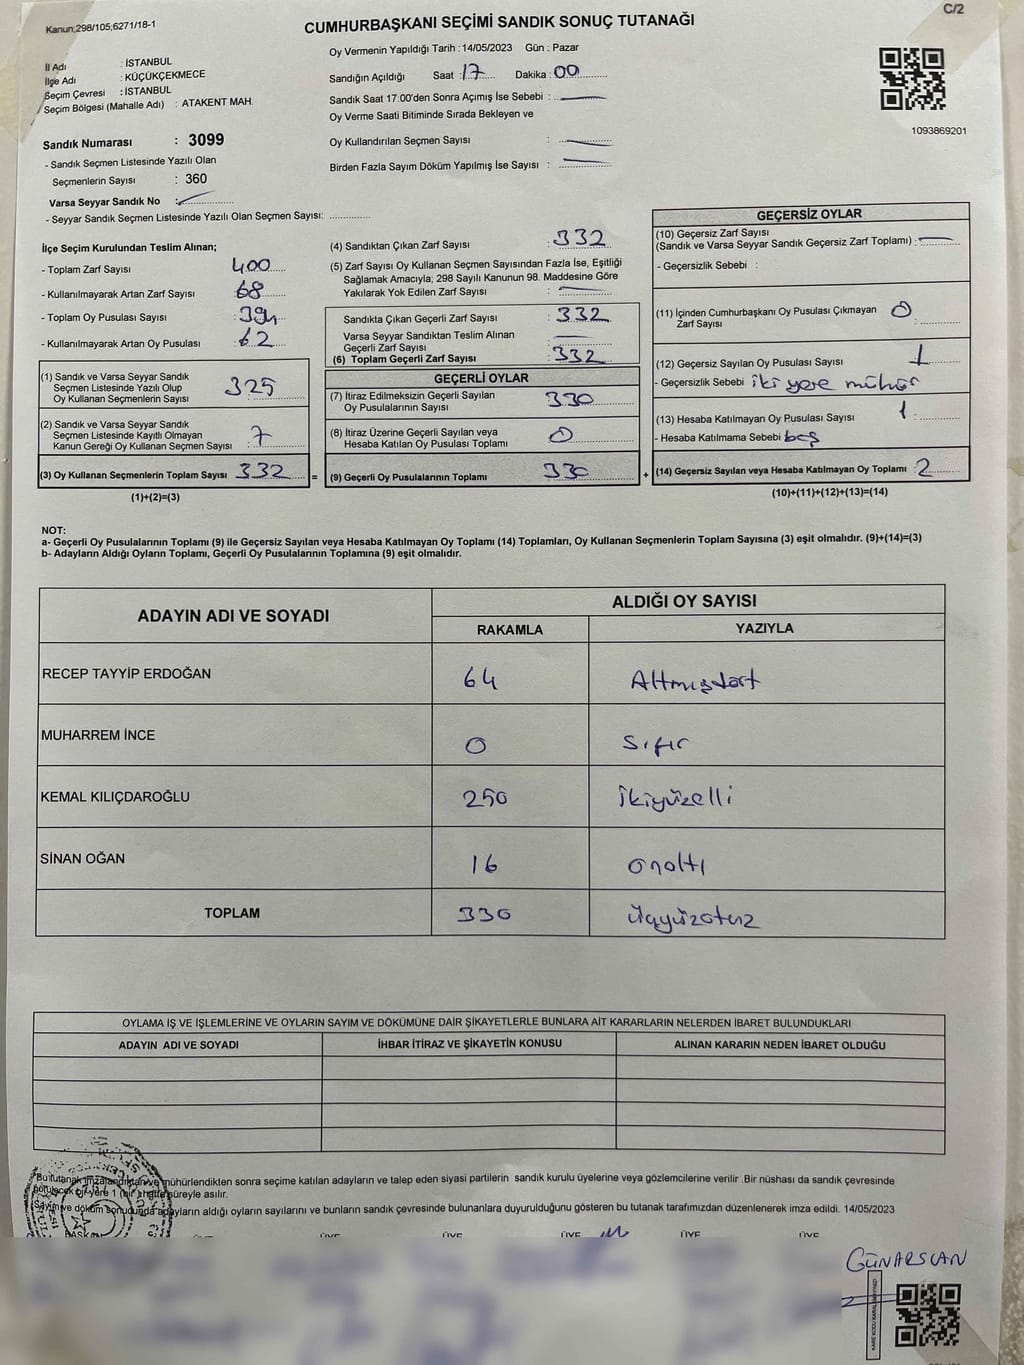 Kanun;298/105;6271/18-1
C/2
CUMHURBAŞKANI SEÇİMİ SANDIK SONUÇ TUTANAĞI
İl Adı : İSTANBUL
İlçe Adı : KÜÇÜKÇEKMECE
Seçim Çevresi : İSTANBUL
Seçim Bölgesi (Mahalle Adı) : ATAKENT MAH.
Sandık Numarası : 3099
- Sandık Seçmen Listesinde Yazılı Olan
Seçmenlerin Sayısı : 360
Varsa Seyyar Sandık No :
- Seyyar Sandık Seçmen Listesinde Yazılı Olan Seçmen Sayısı:
Oy Vermenin Yapıldığı Tarih : 14/05/2023 Gün : Pazar
Sandığın Açıldığı Saat : 17 Dakika : 00
Sandık Saat 17:00'den Sonra Açımış İse Sebebi :
Oy Verme Saati Bitiminde Sırada Bekleyen ve
Oy Kullandırılan Seçmen Sayısı :
Birden Fazla Sayım Döküm Yapılmış İse Sayısı :
1093869201
İlçe Seçim Kurulundan Teslim Alınan;
- Toplam Zarf Sayısı : 400
- Kullanılmayarak Artan Zarf Sayısı : 68
- Toplam Oy Pusulası Sayısı : 394
- Kullanılmayarak Artan Oy Pusulası : 62
(1) Sandık ve Varsa Seyyar Sandık
Seçmen Listesinde Yazılı Olup
Oy Kullanan Seçmenlerin Sayısı : 325
(2) Sandık ve Varsa Seyyar Sandık
Seçmen Listesinde Kayıtlı Olmayan
Kanun Gereği Oy Kullanan Seçmen Sayısı : 7
(3) Oy Kullanan Seçmenlerin Toplam Sayısı : 332
(1)+(2)=(3)
=
(4) Sandıktan Çıkan Zarf Sayısı : 332
(5) Zarf Sayısı Oy Kullanan Seçmen Sayısından Fazla İse, Eşitliği
Sağlamak Amacıyla; 298 Sayılı Kanunun 98. Maddesine Göre
Yakılarak Yok Edilen Zarf Sayısı :
Sandıkta Çıkan Geçerli Zarf Sayısı : 332
Varsa Seyyar Sandıktan Teslim Alınan
Geçerli Zarf Sayısı :
(6) Toplam Geçerli Zarf Sayısı : 332
GEÇERLİ OYLAR
(7) İtiraz Edilmeksizin Geçerli Sayılan
Oy Pusulalarının Sayısı : 330
(8) İtiraz Üzerine Geçerli Sayılan veya
Hesaba Katılan Oy Pusulası Toplamı : 0
(9) Geçerli Oy Pusulalarının Toplamı : 330
+
GEÇERSİZ OYLAR
(10) Geçersiz Zarf Sayısı
(Sandık ve Varsa Seyyar Sandık Geçersiz Zarf Toplamı) :
- Geçersizlik Sebebi :
(11) İçinden Cumhurbaşkanı Oy Pusulası Çıkmayan
Zarf Sayısı : 0
(12) Geçersiz Sayılan Oy Pusulası Sayısı : 1
- Geçersizlik Sebebi : iki yere mühür
(13) Hesaba Katılmayan Oy Pusulası Sayısı : 1
- Hesaba Katılmama Sebebi : boş
(14) Geçersiz Sayılan veya Hesaba Katılmayan Oy Toplamı : 2
(10)+(11)+(12)+(13)=(14)
NOT:
a- Geçerli Oy Pusulalarının Toplamı (9) ile Geçersiz Sayılan veya Hesaba Katılmayan Oy Toplamı (14) Toplamları, Oy Kullanan Seçmenlerin Toplam Sayısına (3) eşit olmalıdır. (9)+(14)=(3)
b- Adayların Aldığı Oyların Toplamı, Geçerli Oy Pusulalarının Toplamına (9) eşit olmalıdır.
ADAYIN ADI VE SOYADI ALDIĞI OY SAYISI
RAKAMLA YAZIYLA
RECEP TAYYİP ERDOĞAN 64 Altmışdört
MUHARREM İNCE 0 Sıfır
KEMAL KILIÇDAROĞLU 250 İkiyüzelli
SİNAN OĞAN 16 Onaltı
TOPLAM 330 Üçyüzotuz
OYLAMA İŞ VE İŞLEMLERİNE VE OYLARIN SAYIM VE DÖKÜMÜNE DAİR ŞİKAYETLERLE BUNLARA AİT KARARLARIN NELERDEN İBARET BULUNDUKLARI
ADAYIN ADI VE SOYADI İHBAR İTİRAZ VE ŞİKAYETİN KONUSU ALINAN KARARIN NEDEN İBARET OLDUĞU
Bu tutanak imzalandıktan ve mühürlendikten sonra seçime katılan adayların ve talep eden siyasi partilerin sandık kurulu üyelerine veya gözlemcilerine verilir .Bir nüshası da sandık çevresinde
görülecek bir yere 1 (bir) hafta süreyle asılır.
Sayım ve döküm sonucunda adayların aldığı oyların sayılarını ve bunların sandık çevresinde bulunanlara duyurulduğunu gösteren bu tutanak tarafımızdan düzenlenerek imza edildi. 14/05/2023
BAŞKAN ÜYE ÜYE ÜYE ÜYE ÜYE
GÜNARSLAN